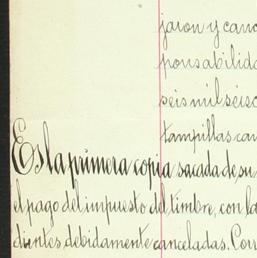 jaron y canc
ponsabilida
seis mil seisc
tampillas can
Es la primera copia sacada de, su
el pago del impuesto del timbre, con la
dientes, debidamente canceladas. Corr